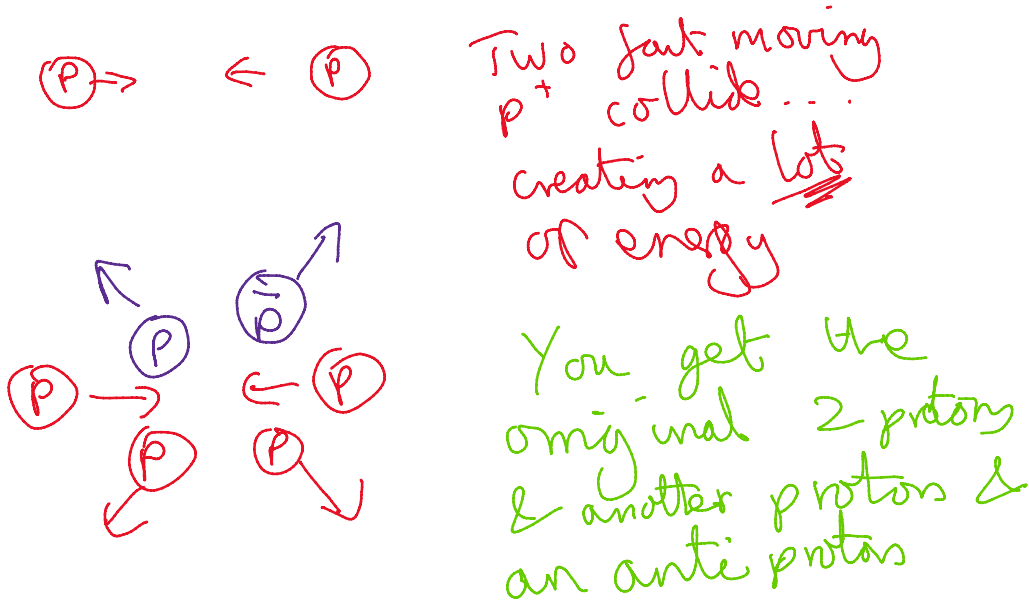 P P
Two fast moving
p+ collide....
creating a lot
of energy
P p̄
P P
P P
You get the
original 2 protons
& another proton &
an anti proton